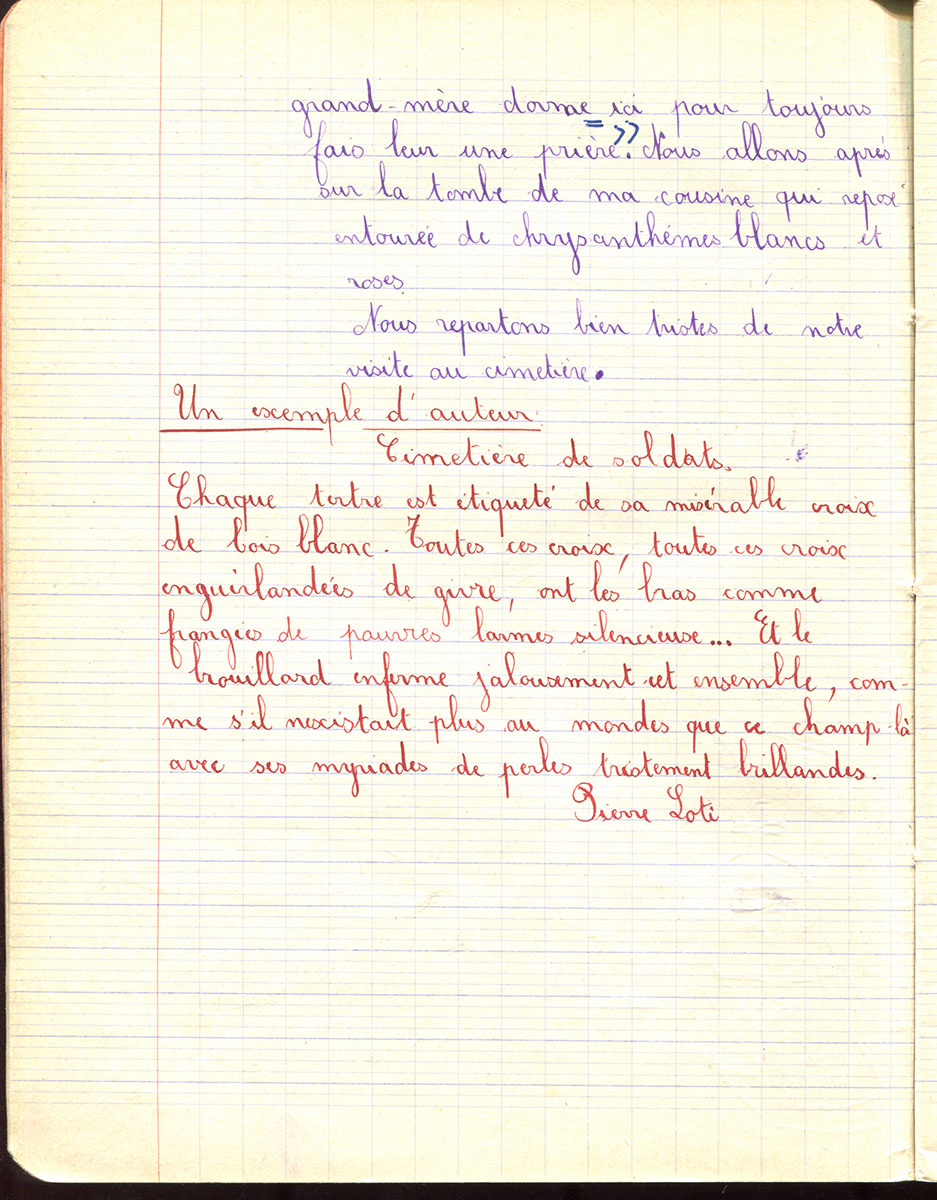 grand-mère dorme ici pour toujours
fais leur une prière.» Nous allons après
sur la tombe de ma cousine qui repose
entourée de chrysanthèmes blancs et
roses.
Nous repartons bien tristes de notre
visite au cimetière.
Un exemple d'auteur.
Cimetière de soldats.
Chaque tertre est étiqueté de sa misérable croix
de bois blanc. Toutes ces croix, toutes ces croix
enguirlandées de givre, ont les bras comme
frangées de pauvres larmes silencieuse... Et le
brouillard enferme jalousement cet ensemble, com-
me s'il nexistait plus au mondes que ce champ-là
avec ses myriades de perles tristement brillandes.
Pierre Loti